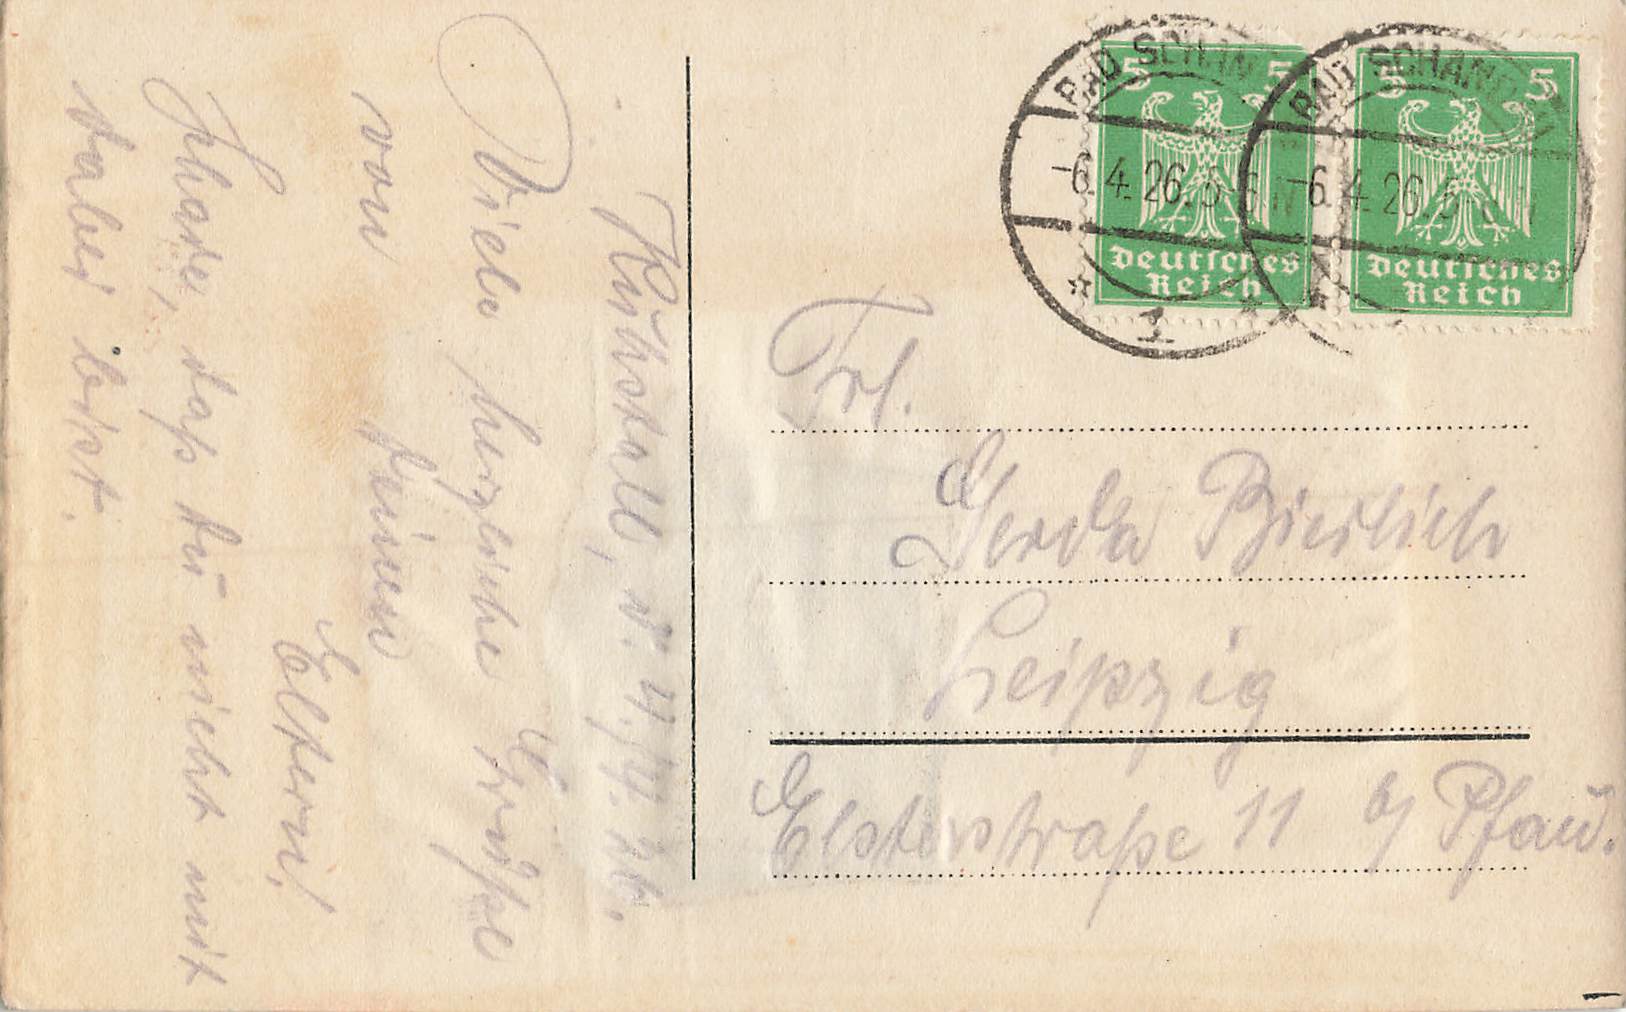 Kuhstall, d. 4./4. 26.
Viele herzliche Grüße
von
Deinen
Eltern!
Schade, daß Du nicht mit
dabei bist.
BAD SCHANDAU
-6.4.26.
1
BAD SCHANDAU
-6.4.26.
5 5
Deutsches
Reich
5 5
Deutsches
Reich
Frl.
Gerda Bierlich
Leipzig
Elsterstraße 11 b/ Pfau.